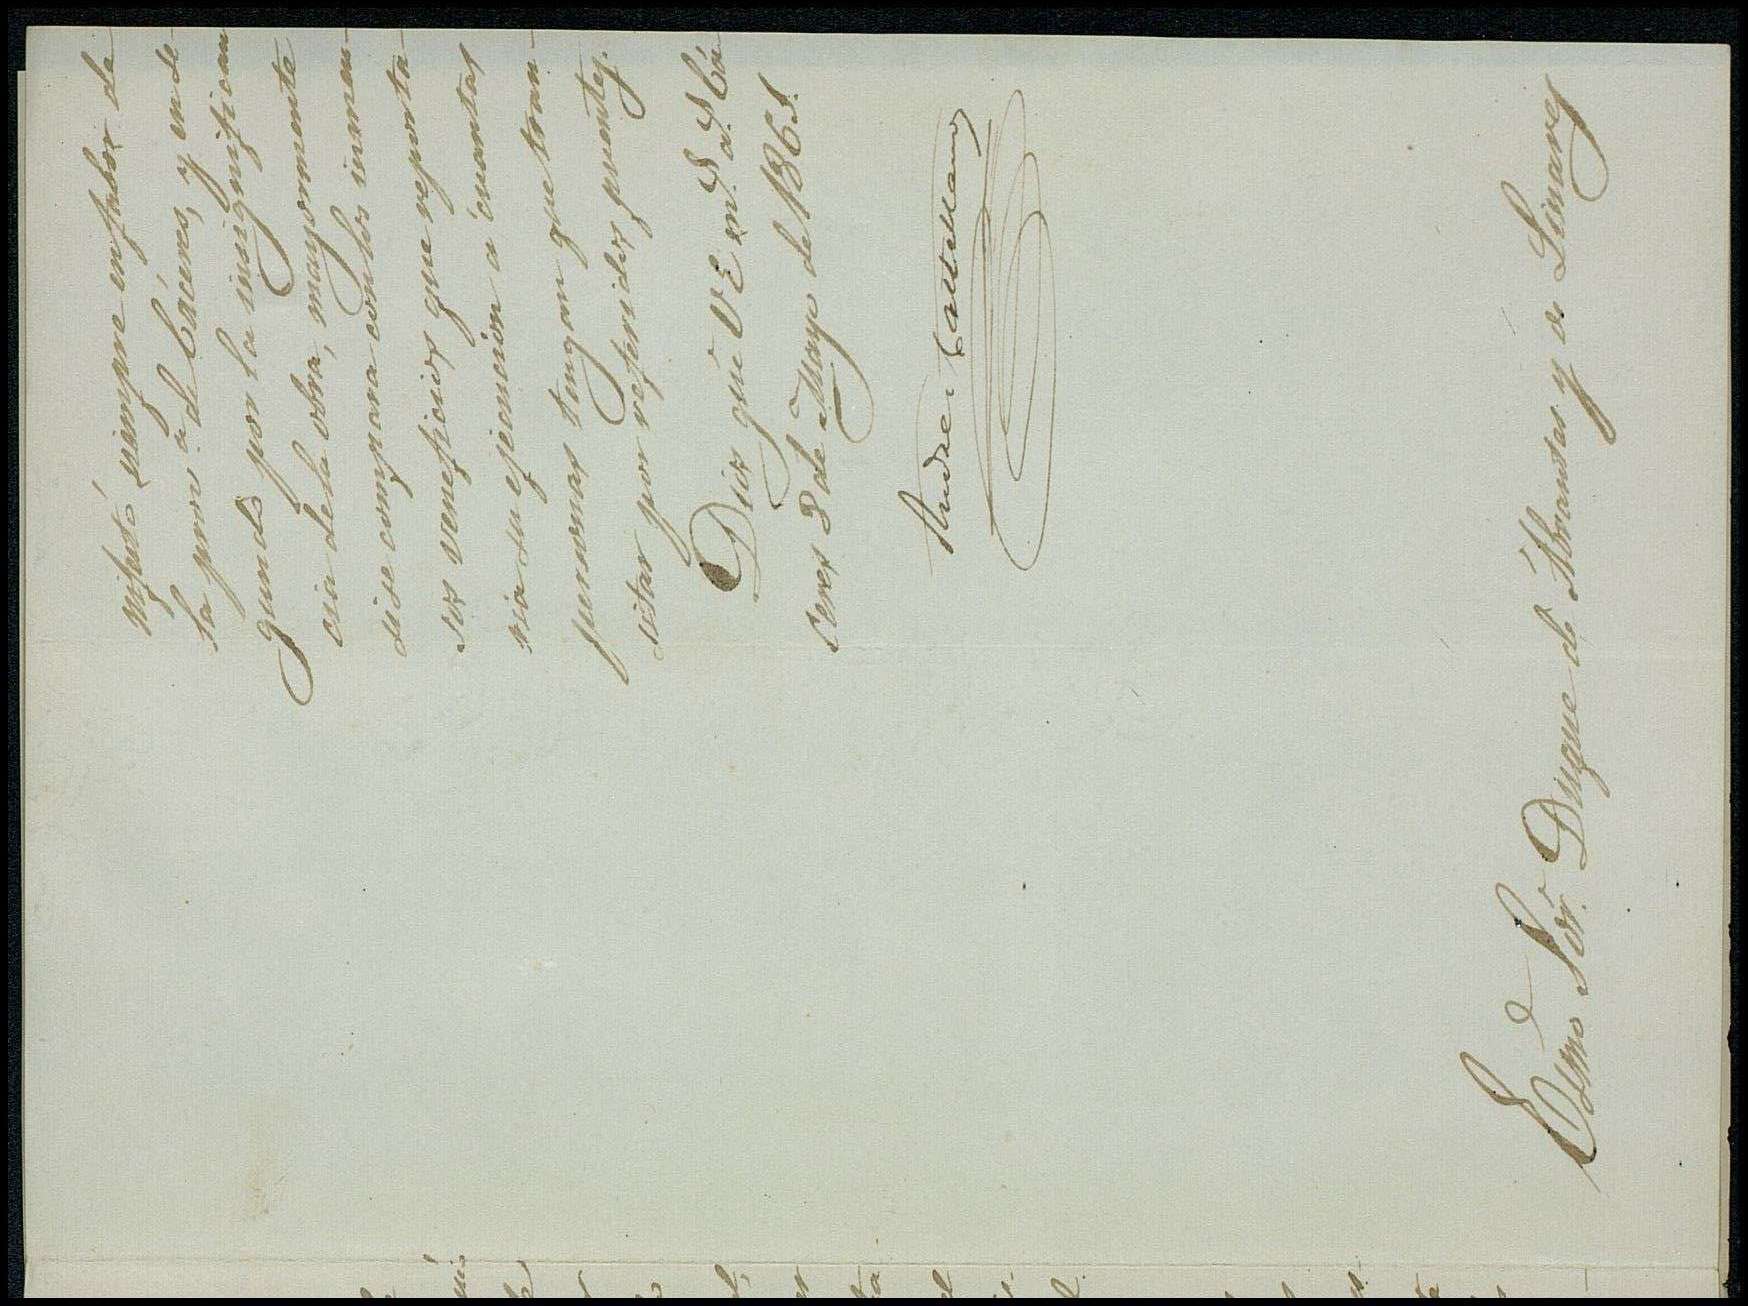 nifestó siempre en fabor de
la provª de Cáceres, y en se-
gundo por la insignifican
cia de la obra, mayormente
si se compara con los inmen-
sos veneficios que reporta-
ria su ejecucion a cuantas
personas tengan que tran-
sitar por referidos puentes.
Dios gue á V E m.s a.s Cá-
ceres 8 de Mayo de 1865.
Andres Castellano
Exmo Sor. Duque de Abrantes y de Linares